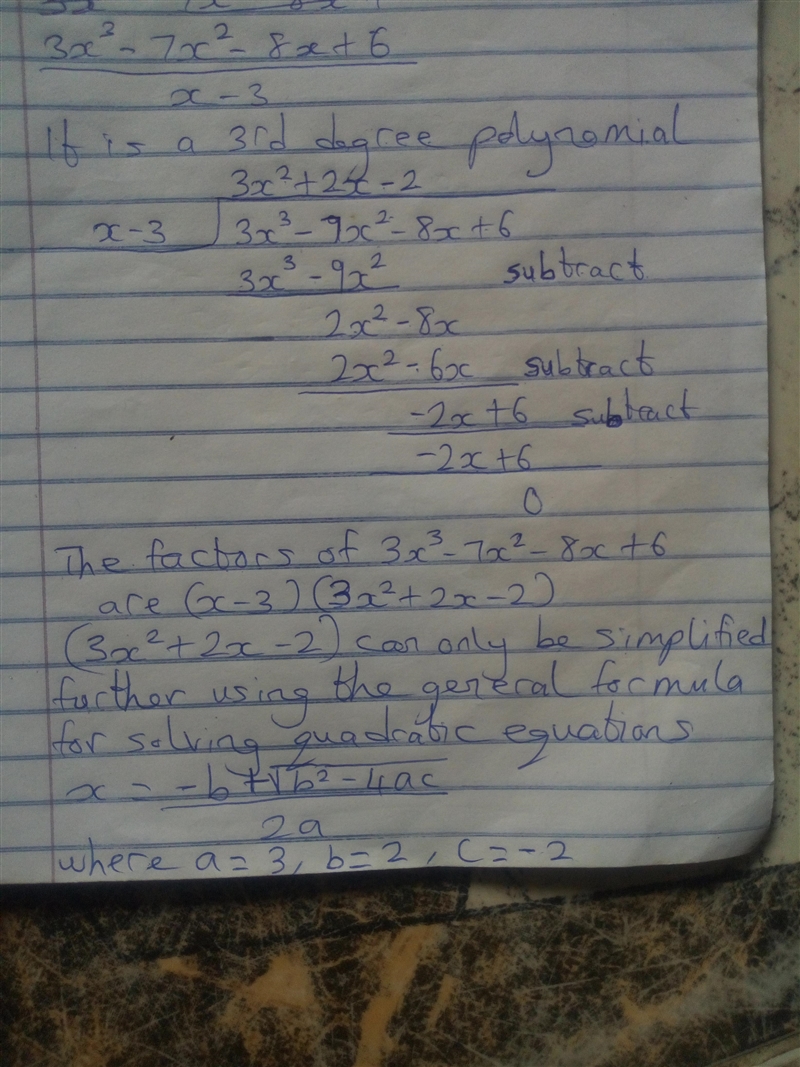 3x³ - 7x² - 8x + 6
x - 3
If is a 3rd degree polynomial
3x² + 2x - 2
x - 3 3x³ - 9x² - 8x + 6
3x³ - 9x² subtract
2x² - 8x
2x² - 6x subtract
-2x + 6 subtract
-2x + 6
0
The factors of 3x³ - 7x² - 8x + 6
are (x - 3) (3x² + 2x - 2)
(3x² + 2x - 2) can only be simplified
further using the general formula
for solving quadratic equations
x = -b ± √b² - 4ac
2a
where a = 3, b = 2, c = -2